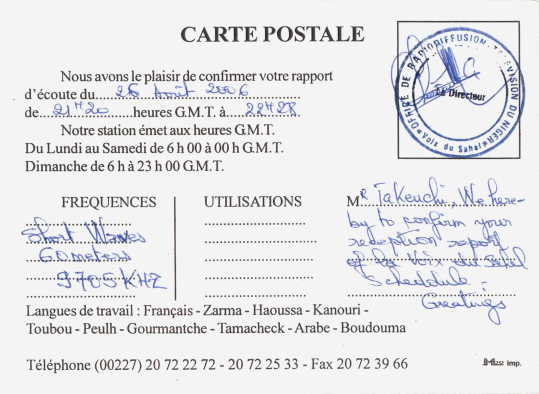 CARTE POSTALE
Nous avons le plaisir de confirmer votre rapport
d'écoute du 26 Août 2006
de 21H20 heures G.M.T. à 22H28
Notre station émet aux heures G.M.T.
Du Lundi au Samedi de 6 h 00 à 00 h G.M.T.
Dimanche de 6 h à 23 h 00 G.M.T.
OFFICE DE RADIODIFFUSION-TELEVISION DU NIGER
Le Directeur
Voix du Sahel
FREQUENCES
Short Waves
60 meters
9705 KHZ
UTILISATIONS
MR Takeuchi, We here-
by to confirm your
reception report
of la Voix du Sahel
Schedule.
Greetings
Langues de travail : Français - Zarma - Haoussa - Kanouri -
Toubou - Peulh - Gourmantche - Tamacheck - Arabe - Boudouma
Téléphone (00227) 20 72 22 72 - 20 72 25 33 - Fax 20 72 39 66
imp.